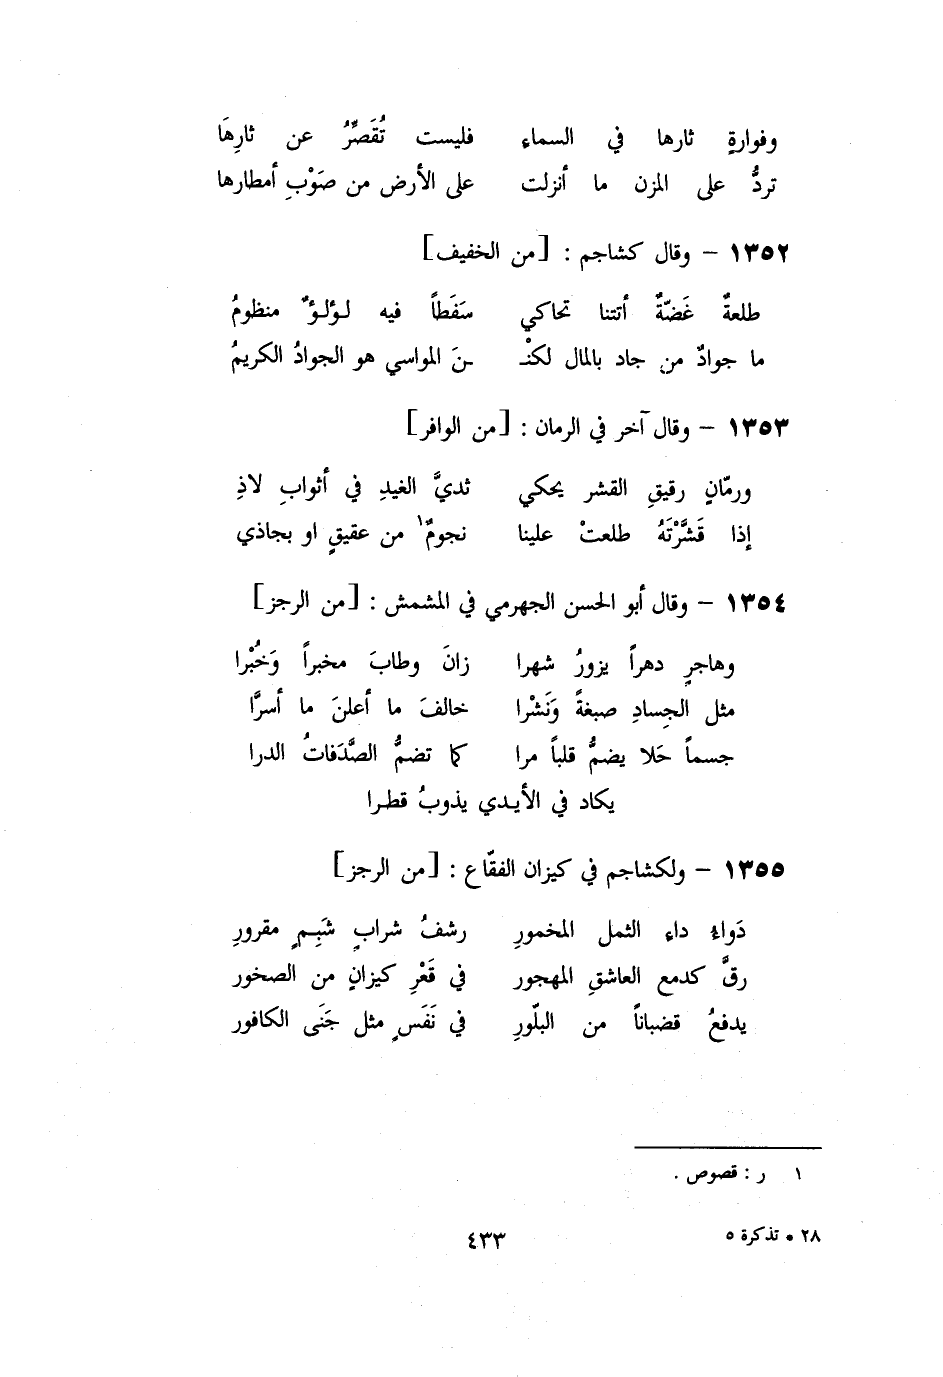 وفوارةٍ ثارها في السماء فليست تُقَصِّرُ عن ثارِهَا
تردُّ على المزن ما أنزلت على الأرض من صَوْبِ أمطارها
١٣٥٢ – وقال كشاجم : [من الخفيف]
طلعةٌ غَضّةٌ أتتنا تحاكي سَفَطاً فيه لؤلؤٌ منظومُ
ما جوادٌ من جاد بالمال لكنْـ ـنَ المواسي هو الجوادُ الكريمُ
١٣٥٣ – وقال آخر في الرمان : [من الوافر]
ورمّانٍ رقيقِ القشر يحكي ثديَّ الغيدِ في أثوابِ لاذِ
إذا قَشَّرْتَهُ طلعتْ علينا نجومٌ١ من عقيقٍ او بجاذي
١٣٥٤ – وقال أبو الحسن الجهرمي في المشمش : [من الرجز]
وهاجرٍ دهراً يزورُ شهرا زانَ وطابَ مخبراً وَخُبْرا
مثل الجِسادِ صبغةً وَنَشْرا خالفَ ما أعلنَ ما أسرَّا
جسماً حَلا يضمُّ قلباً مرا كما تضمُّ الصَّدَفاتُ الدرا
يكاد في الأيدي يذوبُ قطرا
١٣٥٥ – ولكشاجم في كيزان الفقّاع : [من الرجز]
دَواءُ داء الثمل المخمورِ رشفُ شرابٍ شَبِمٍ مقرورِ
رقَّ كدمع العاشقِ المهجور في قَعْرِ كيزانٍ من الصخور
يدفعُ قضباناً من البلّورِ في نَفَسٍ مثل جَنَى الكافور
١ ر : قصوص .
٢٨ • تذكرة ٥
٤٣٣